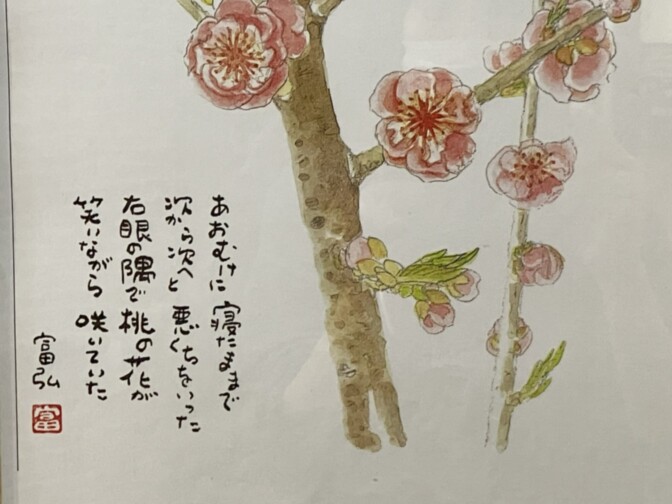 あおむけに 寝たままで
次から次へと 悪くちをいった
右眼の隅で 桃の花が
笑いながら 咲いていた
富弘
富